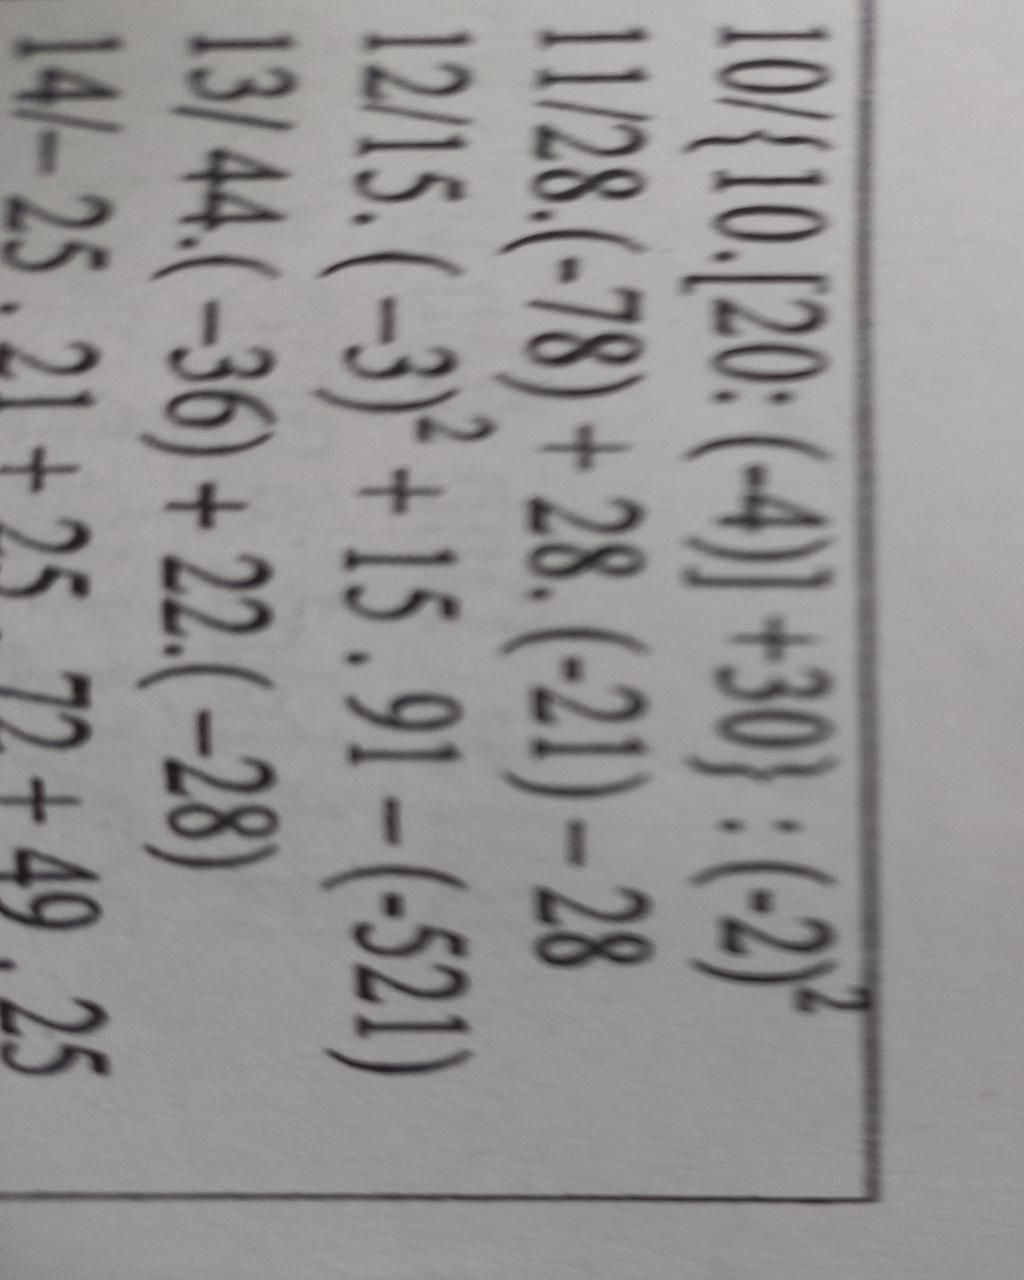 10/{10.[20: (-4)] +30} : (-2)²
11/28.(-78) + 28. (-21) – 28
12/15. ( –3)² + 15 . 91 – (-521)
13/ 44.( –36) + 22.( –28)
14/– 25 . 21 + 25 . 72 + 49 . 25